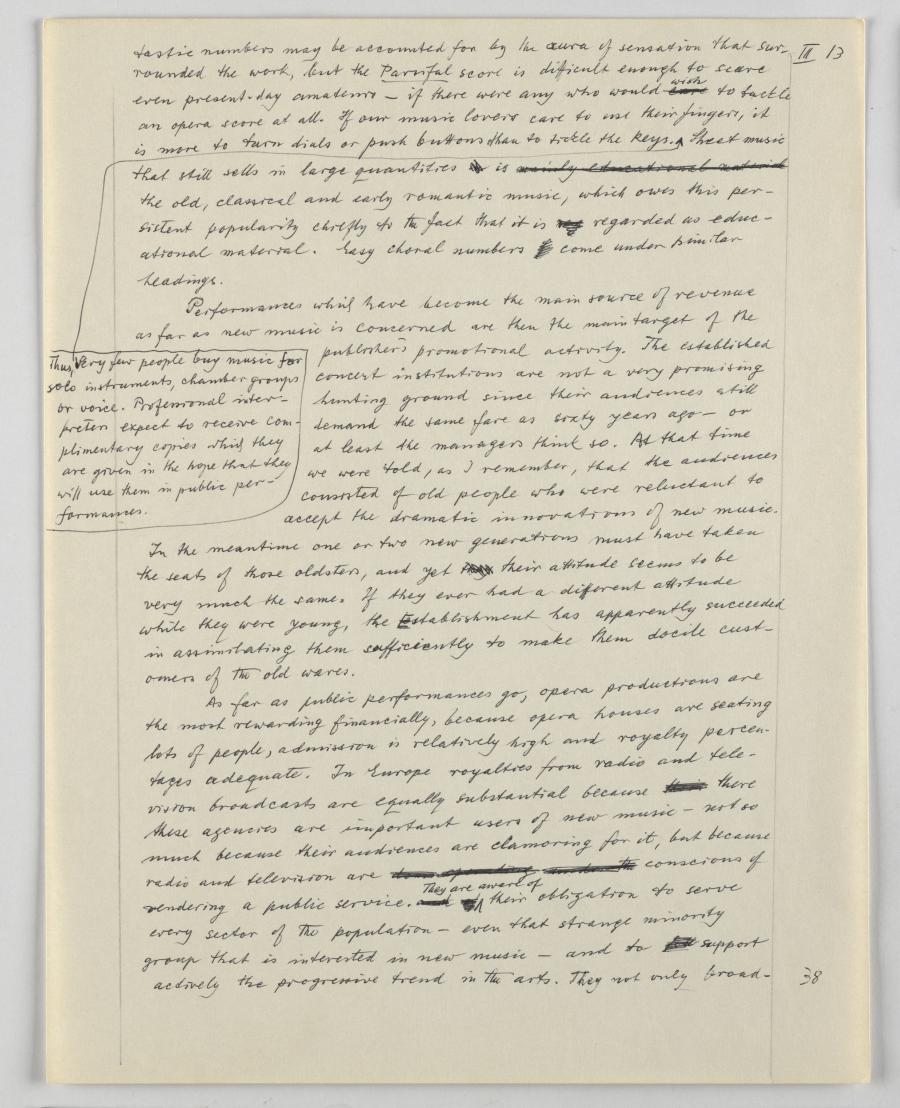 III 13
tastic numbers may be accounted for by the aura of sensation that sur-
rounded the work, but the Parsifal score is difficult enough to scare
even present-day amateurs — if there were any who would care wish to tackle
an opera score at all. If our music lovers care to use their fingers, it
is more to turn dials or push buttons than to tickle the keys. Sheet music
that still sells in large quantities is mainly educational material
the old, classical and early romantic music, which owes this per-
sistent popularity chiefly to the fact that it is regarded as educ-
ational material. Easy choral numbers come under similar
headings.
Performances which have become the main source of revenue
as far as new music is concerned are then the main target of the
publisher's promotional activity. The established
concert institutions are not a very promising
hunting ground since their audiences still
demand the same fare as sixty years ago — or
at least the managers think so. At that time
we were told, as I remember, that the audiences
consisted of old people who were reluctant to
accept the dramatic innovations of new music.
Thus, Very few people buy music for
solo instruments, chamber groups
or voice. Professional inter-
preters expect to receive com-
plimentary copies which they
are given in the hope that they
will use them in public per-
formances.
In the meantime one or two new generations must have taken
the seats of those oldsters, and yet they their attitude seems to be
very much the same. If they ever had a different attitude
while they were young, the Establishment has apparently succeeded
in assimilating them sufficiently to make them docile cust-
omers of the old wares.
As far as public performances go, opera productions are
the most rewarding financially, because opera houses are seating
lots of people, admission is relatively high and royalty percen-
tages adequate. In Europe royalties from radio and tele-
vision broadcasts are equally substantial because their there
these agencies are important users of new music — not so
much because their audiences are clamoring for it, but because
radio and television are conscious of
rendering a public service. and They are aware of their obligation to serve
every sector of the population — even that strange minority
group that is interested in new music — and to support
actively the progressive trend in the arts. They not only broad-
38